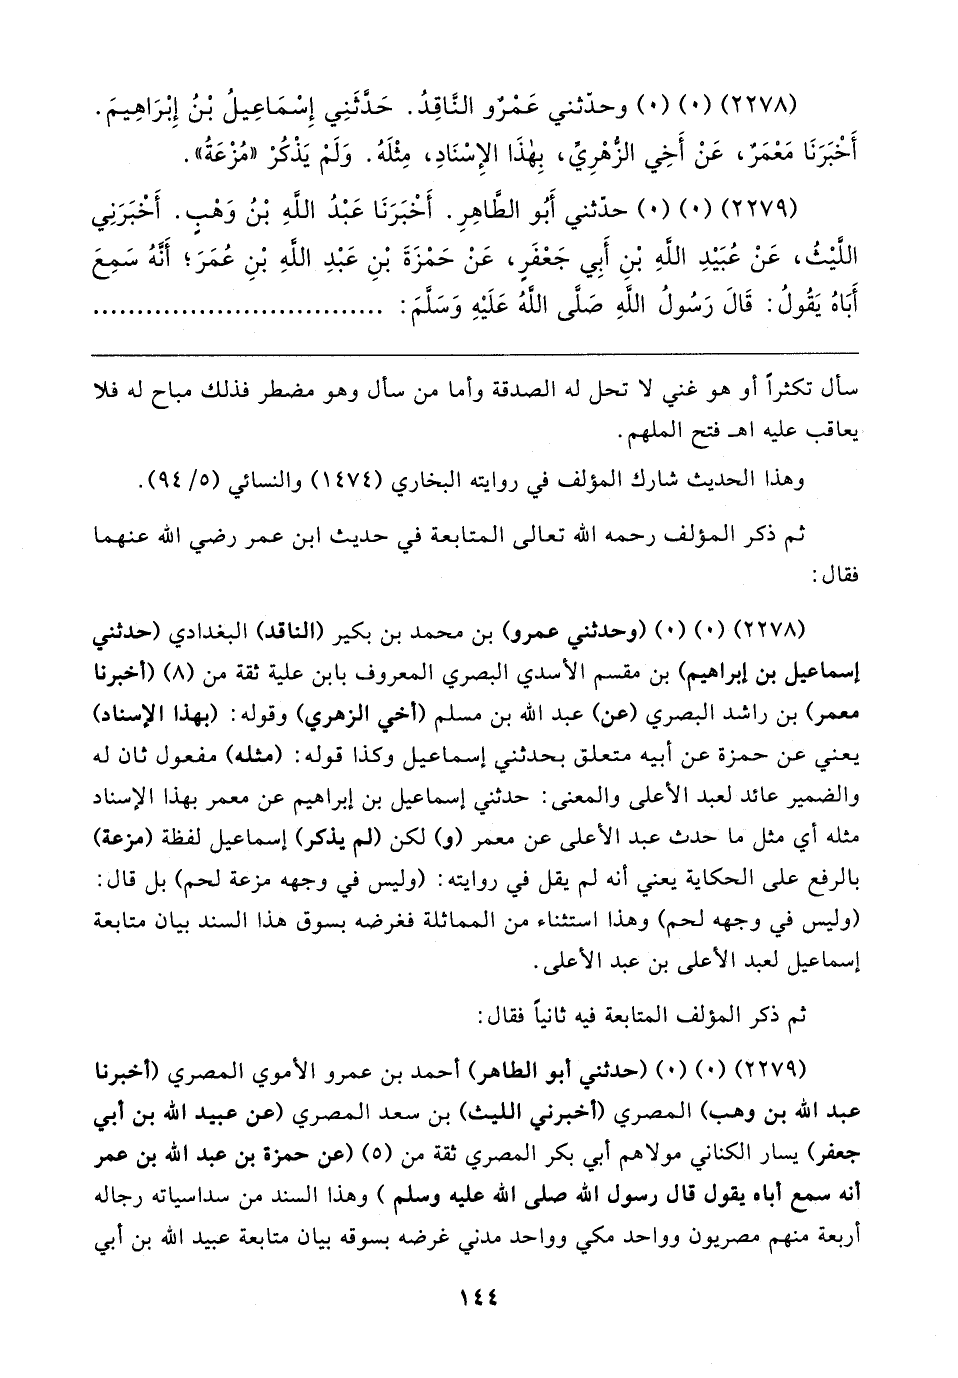 (٢٢٧٨) (٠) (٠) وحدّثني عَمْرٌو النَّاقِدُ. حَدَّثَنِي إِسْمَاعِيلُ بْنُ إِبْرَاهِيمَ.
أَخْبَرَنَا مَعْمَرٌ، عَنْ أَخِي الزُّهْرِيِّ، بِهٰذَا الإِسْنَادِ، مِثْلَهُ. وَلَمْ يَذْكُرْ «مُزْعَةُ».
(٢٢٧٩) (٠) (٠) حدّثني أَبُو الطَّاهِرِ. أَخْبَرَنَا عَبْدُ اللَّهِ بْنُ وَهْبٍ. أَخْبَرَنِي
اللَّيْثُ، عَنْ عُبَيْدِ اللَّهِ بْنِ أَبِي جَعْفَرٍ، عَنْ حَمْزَةَ بْنِ عَبْدِ اللَّهِ بْنِ عُمَرَ؛ أَنَّهُ سَمِعَ
أَبَاهُ يَقُولُ: قَالَ رَسُولُ اللَّهِ صَلَّى اللَّهُ عَلَيْهِ وَسَلَّمَ: ................................
سأل تكثراً أو هو غني لا تحل له الصدقة وأما من سأل وهو مضطر فذلك مباح له فلا
يعاقب عليه اهـ فتح الملهم.
وهذا الحديث شارك المؤلف في روايته البخاري (١٤٧٤) والنسائي (٥/ ٩٤).
ثم ذكر المؤلف رحمه الله تعالى المتابعة في حديث ابن عمر رضي الله عنهما
فقال:
(٢٢٧٨) (٠) (٠) (وحدثني عمرو) بن محمد بن بكير (الناقد) البغدادي (حدثني
إسماعيل بن إبراهيم) بن مقسم الأسدي البصري المعروف بابن علية ثقة من (٨) (أخبرنا
معمر) بن راشد البصري (عن) عبد الله بن مسلم (أخي الزهري) وقوله: (بهذا الإسناد)
يعني عن حمزة عن أبيه متعلق بحدثني إسماعيل وكذا قوله: (مثله) مفعول ثان له
والضمير عائد لعبد الأعلى والمعنى: حدثني إسماعيل بن إبراهيم عن معمر بهذا الإسناد
مثله أي مثل ما حدث عبد الأعلى عن معمر (و) لكن (لم يذكر) إسماعيل لفظة (مزعة)
بالرفع على الحكاية يعني أنه لم يقل في روايته: (وليس في وجهه مزعة لحم) بل قال:
(وليس في وجهه لحم) وهذا استثناء من المماثلة فغرضه بسوق هذا السند بيان متابعة
إسماعيل لعبد الأعلى بن عبد الأعلى.
ثم ذكر المؤلف المتابعة فيه ثانياً فقال:
(٢٢٧٩) (٠) (٠) (حدثني أبو الطاهر) أحمد بن عمرو الأموي المصري (أخبرنا
عبد الله بن وهب) المصري (أخبرني الليث) بن سعد المصري (عن عبيد الله بن أبي
جعفر) يسار الكناني مولاهم أبي بكر المصري ثقة من (٥) (عن حمزة بن عبد الله بن عمر
أنه سمع أباه يقول قال رسول الله صلى الله عليه وسلم ) وهذا السند من سداسياته رجاله
أربعة منهم مصريون وواحد مكي وواحد مدني غرضه بسوقه بيان متابعة عبيد الله بن أبي
١٤٤